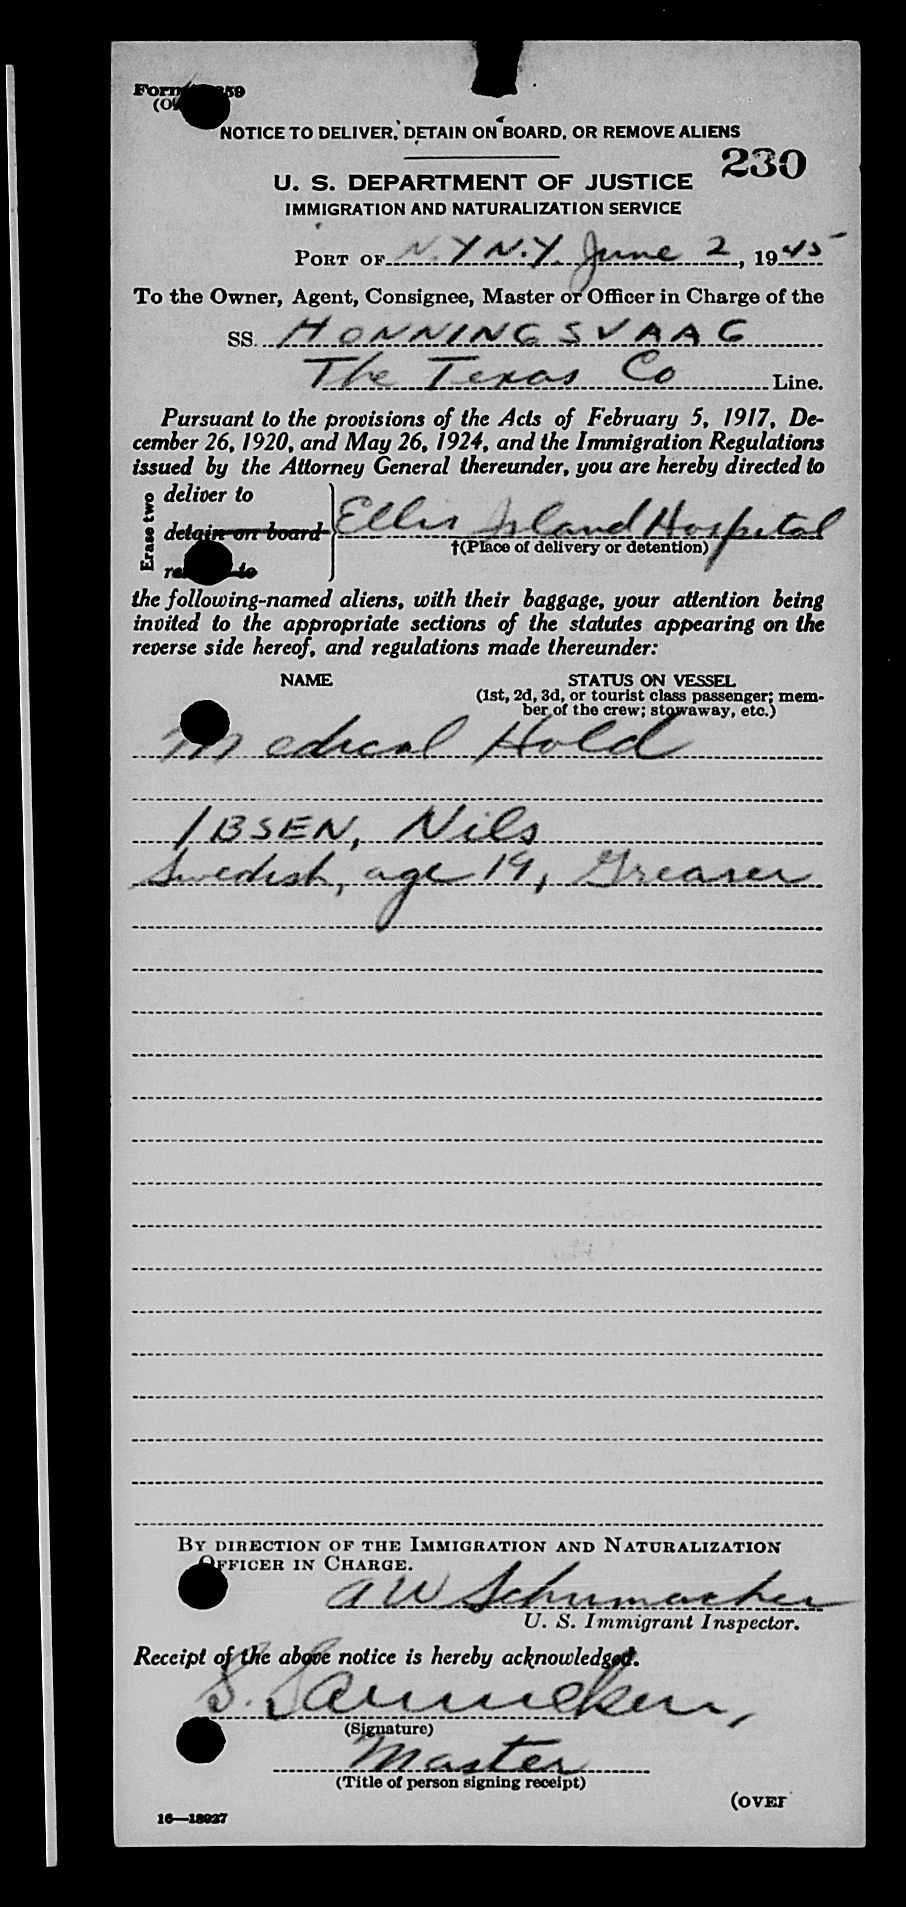 Form 259
NOTICE TO DELIVER, DETAIN ON BOARD, OR REMOVE ALIENS
230
U. S. DEPARTMENT OF JUSTICE
IMMIGRATION AND NATURALIZATION SERVICE
PORT OF N.Y N.Y. June 2, 1945
To the Owner, Agent, Consignee, Master or Officer in Charge of the
SS. HONNINGSVAAG
The Texas Co Line.
Pursuant to the provisions of the Acts of February 5, 1917, De-
cember 26, 1920, and May 26, 1924, and the Immigration Regulations
issued by the Attorney General thereunder, you are hereby directed to
Erase two
deliver to
detain on board
to
Ellis Island Hospital
†(Place of delivery or detention)
the following-named aliens, with their baggage, your attention being
invited to the appropriate sections of the statutes appearing on the
reverse side hereof, and regulations made thereunder:
NAME STATUS ON VESSEL
(1st, 2d, 3d, or tourist class passenger; mem-
ber of the crew; stowaway, etc.)
Medical Hold
IBSEN, Nils
Swedish, age 19, Greaser
BY DIRECTION OF THE IMMIGRATION AND NATURALIZATION
OFFICER IN CHARGE.
A W Schumacher
U. S. Immigrant Inspector.
Receipt of the above notice is hereby acknowledged.
S.
(Signature)
Master
(Title of person signing receipt)
(OVER
16—18927